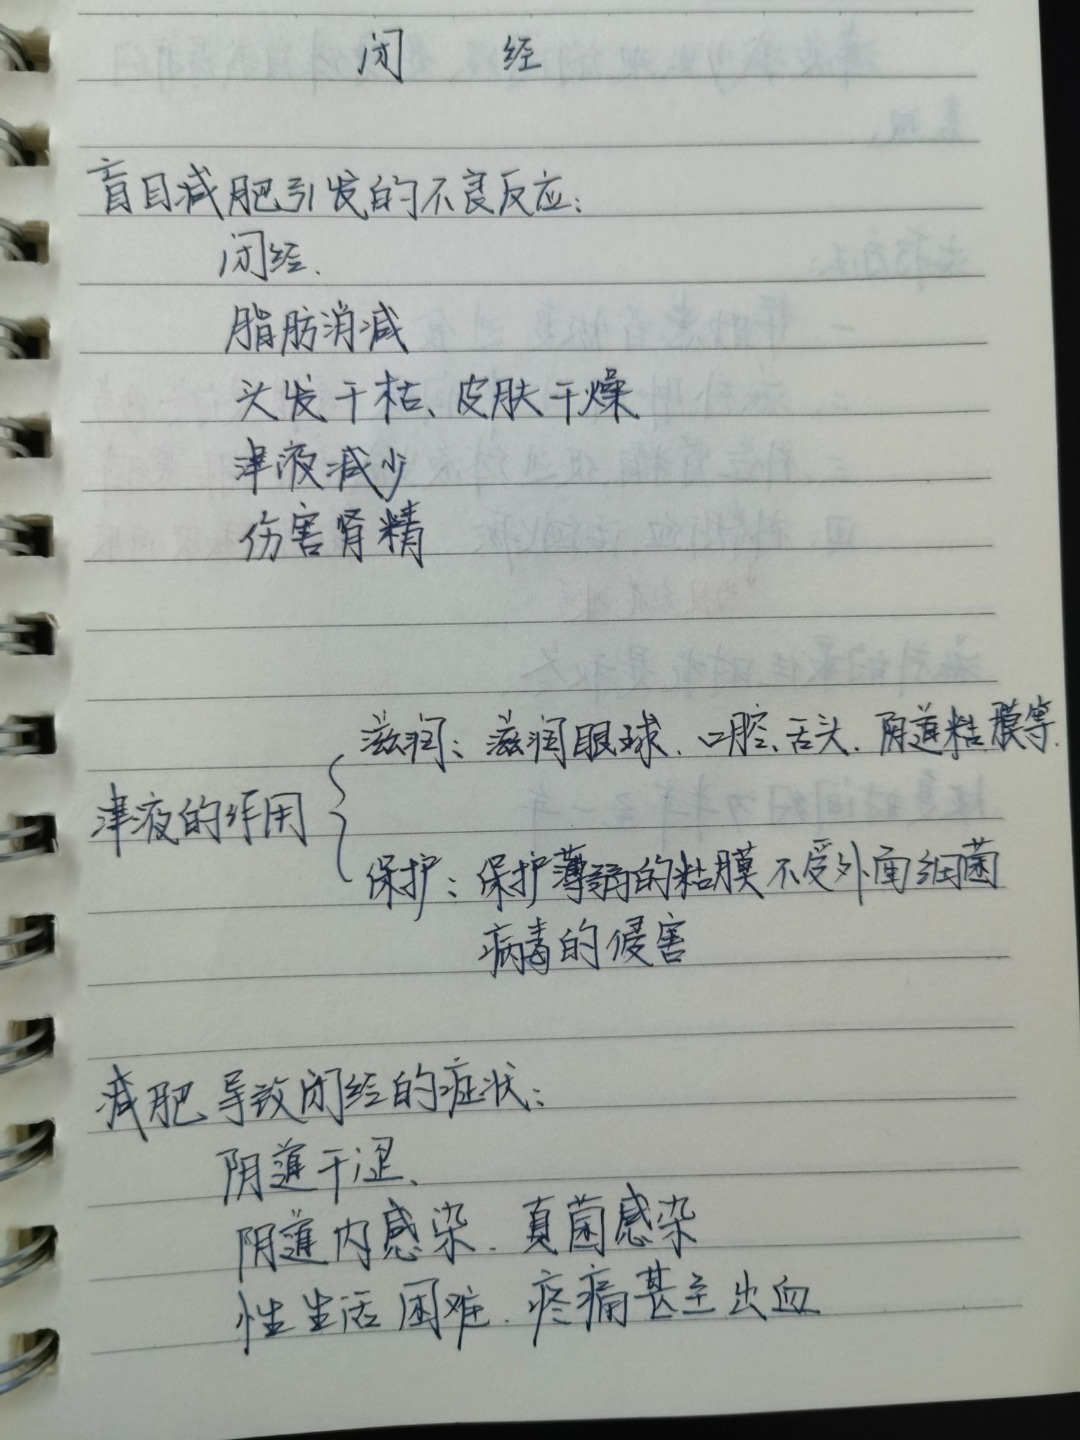 闭 经
盲目减肥引发的不良反应:
闭经.
脂肪消减
头发干枯、皮肤干燥
津液减少
伤害肾精
滋润: 滋润眼球、口腔、舌头、阴道粘膜等.
津液的作用
保护: 保护薄弱的粘膜不受外面细菌
病毒的侵害
减肥导致闭经的症状:
阴道干涩、
阴道内感染、真菌感染
性生活困难、疼痛甚至出血